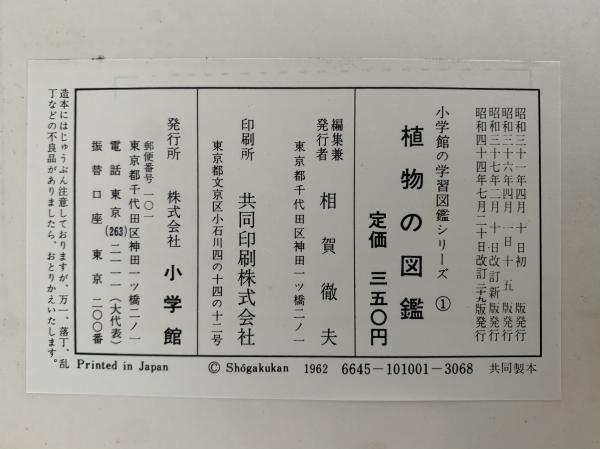 昭和三十一年四月　十日初　版発行
昭和三十六年四月　一日十五版発行
昭和三十七年二月　十日改訂新版発行
昭和四十四年七月二十日改訂二九版発行
小学館の学習図鑑シリーズ ①
植物の図鑑
定価　三五〇円
編集兼
発行者　相賀徹夫
東京都千代田区神田一ツ橋二ノ一
印刷所　共同印刷株式会社
東京都文京区小石川四の十四の十二号
発行所　株式会社　小学館
郵便番号一〇一
東京都千代田区神田一ツ橋二ノ一
電話　東京(263)二一一一(大代表)
振替口座　東京　二〇〇番
造本にはじゅうぶん注意しておりますが、万一、落丁、乱
丁などの不良品がありましたら、おとりかえいたします。
Printed in Japan
© Shōgakukan　1962　6645-101001-3068
共同製本